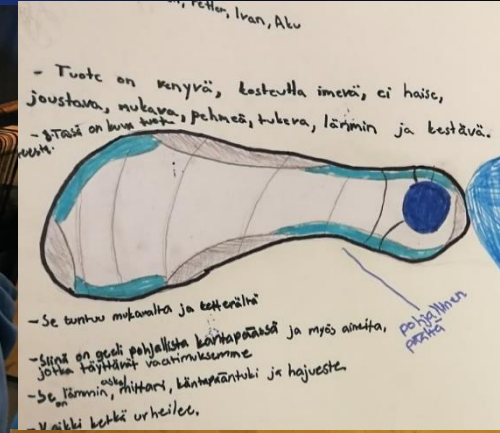 Petter, Ivan, Aku
- Tuote on venyvä, kosteutta imevä, ei haise,
joustava, mukava, pehmeä, tukeva, lämmin ja kestävä.
- Tässä on kuva
- Se tuntuu mukavalta ja ketterältä
- Siinä on geeli pohjallista kantapäässä ja myös aineita,
jotka täyttävät vaatimuksemme
- Se on lämmin, askel mittari, kantapääntuki ja hajueste
- Kaikki ketkä urheilee.
pohjallinen
päältä